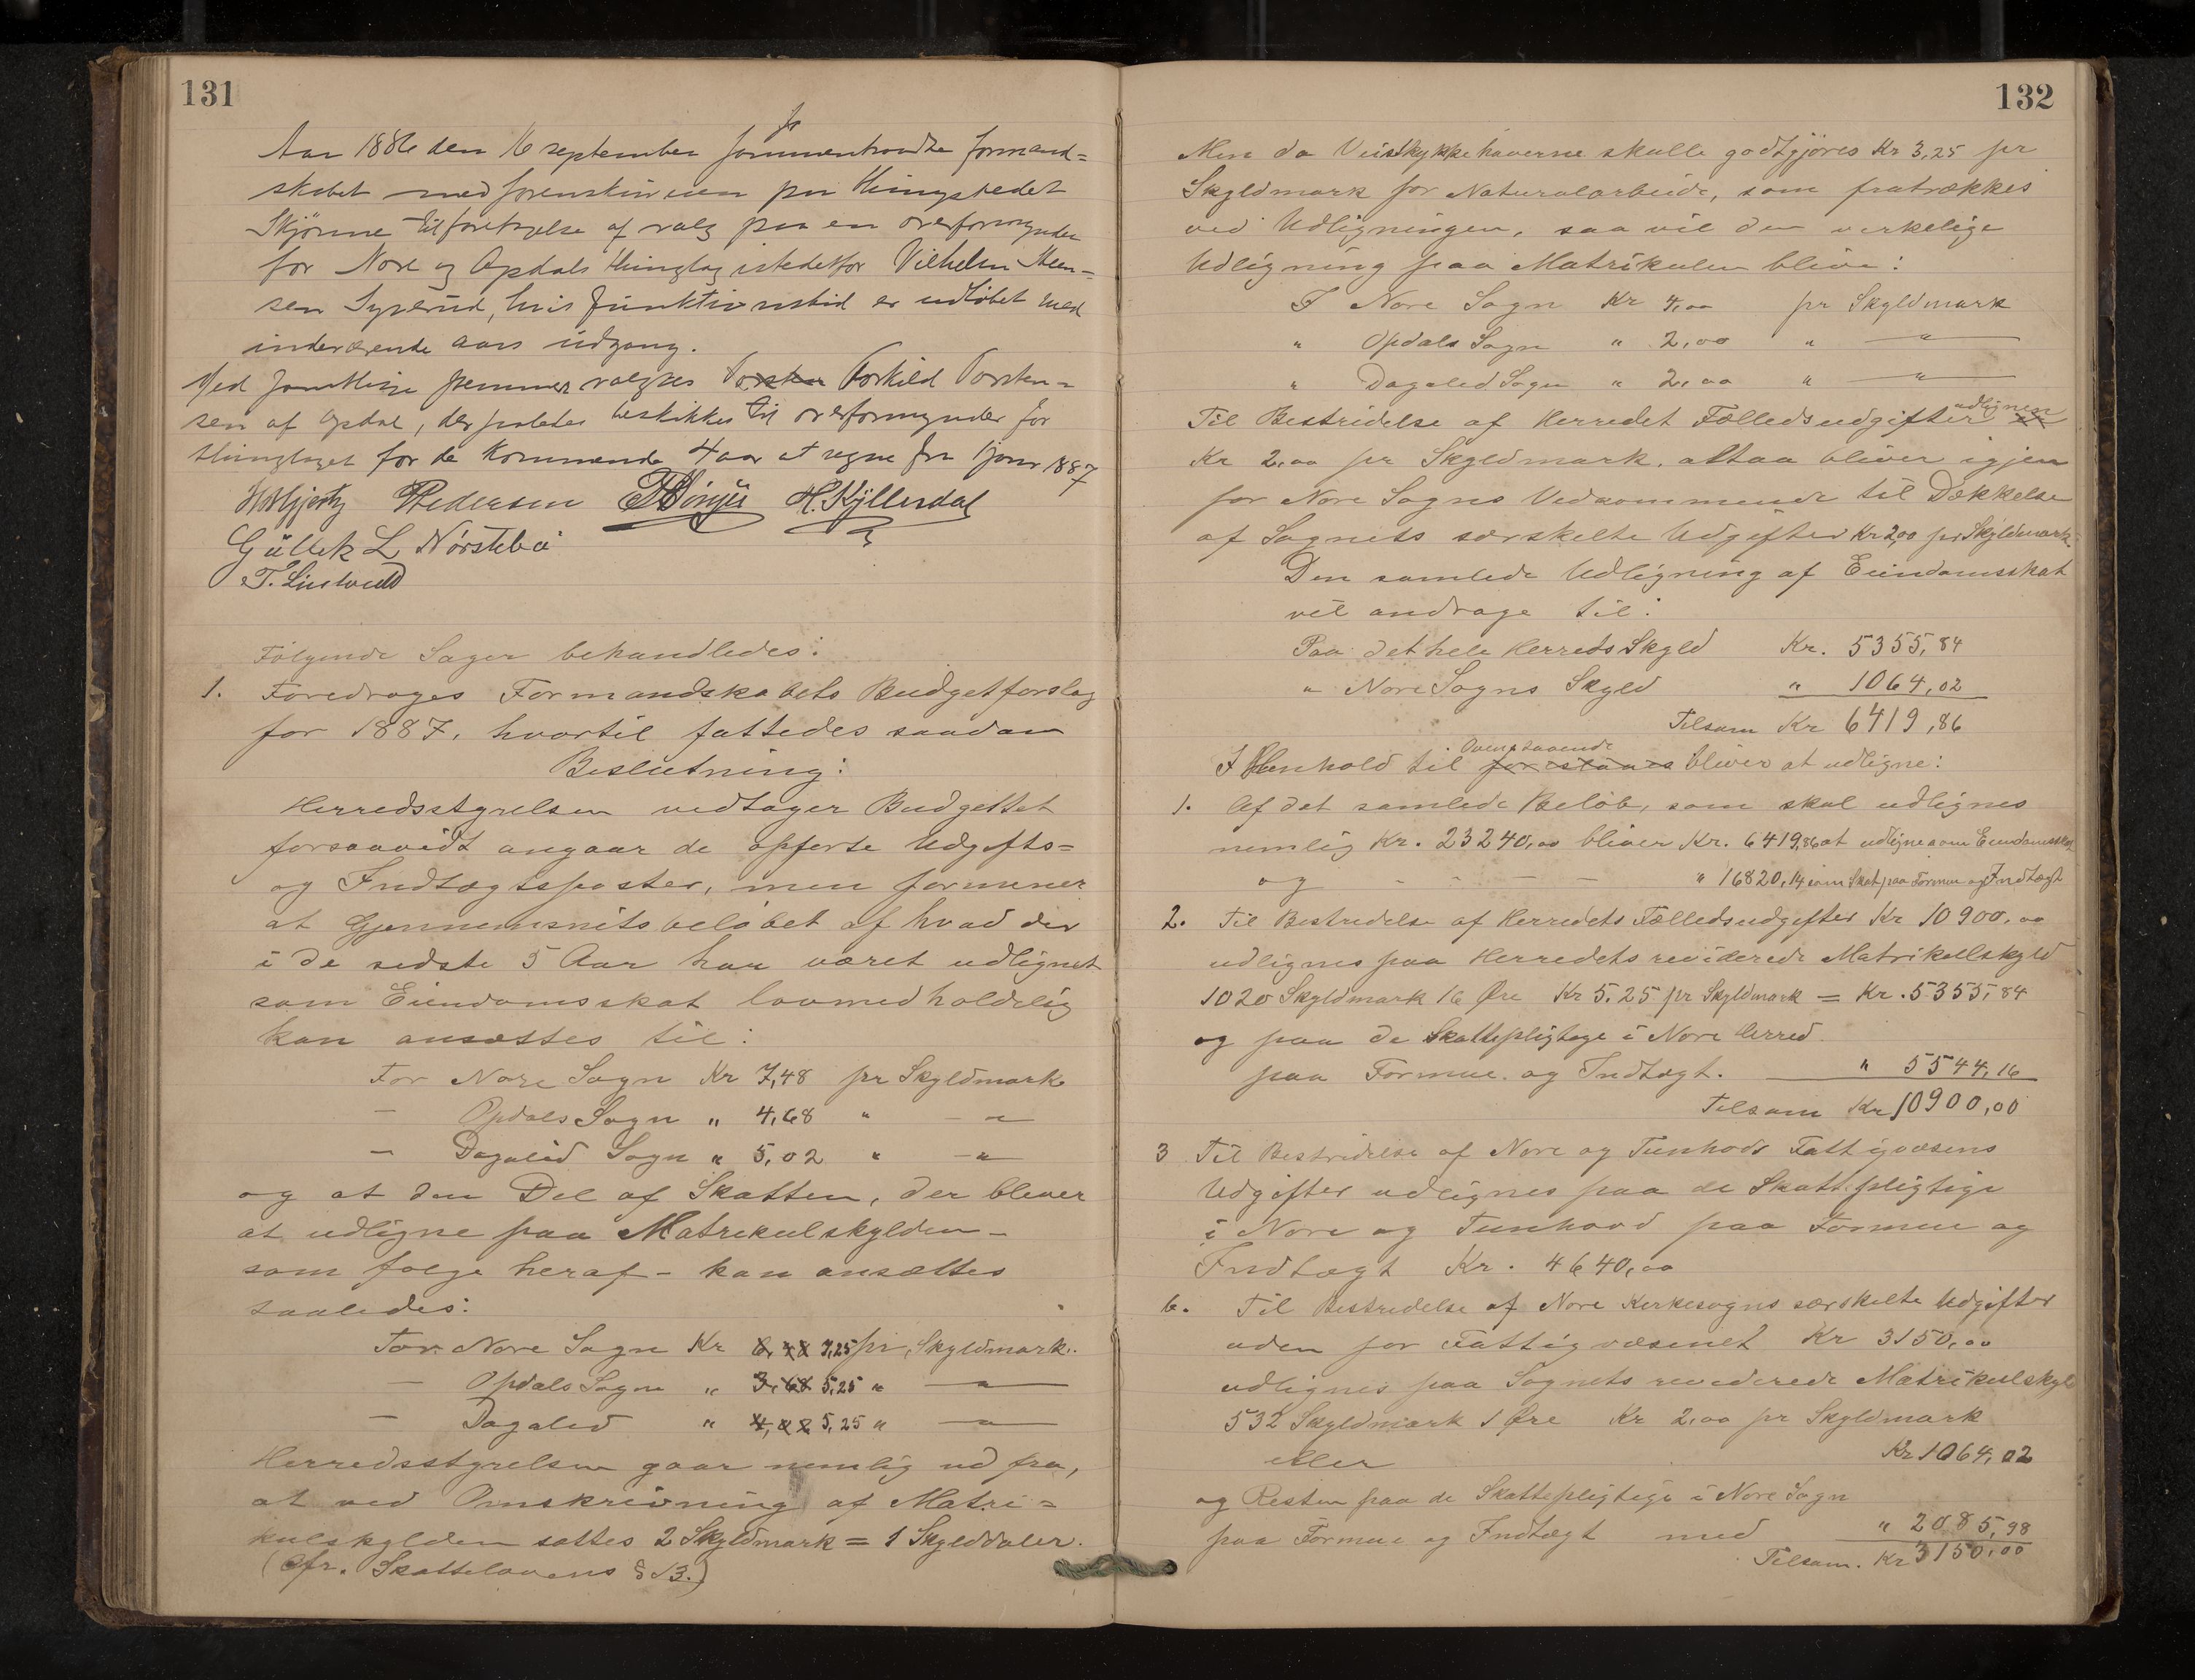 131
Aar 1886 den 16 september sammentraadte formand=
skabet med forenskriveren paa thingstedet
Skjönne til foretagelse af valg paa en overformynder
for Nore og Opdals thinglag istedetfor Vilhelm Steen=
sen Sÿverud, hvis funktionstid er udløbet med
inderværende aars udgang.
Med samtlige stemmer valgtes Torsten Torkild Torsten=
sen af Opdal, der saaledes beskikkes til overformynder for
thinglaget for de kommende 4 aar at regne fra 1 janr 1887
Pedersen TBönjü H. Kÿllesdal
Güllek L Nörstebö
T. Liutvedt
Følgende Sager behandledes:
1. Foredroges Formandskabets Budgetforslag
for 1887, hvortil fattedes saadan
Beslutning:
Herredsstyrelsen vedtager Budgettet
forsaavidt angaar de opførte Udgifts=
og Indtægtsposter, men formener
at Gjennemsnitsbeløbet af hvad der
i de sidste 5 Aar har været udlignet
som Eiendomsskat lovmedholdelig
kan ansættes til:
For Nore Sogn Kr 7,48 pr Skyldmark
— Opdals Sogn " 4,68 " — " —
— Dagalid Sogn " 5,02 " — " —
og at den Del af Skatten, der bliver
at udligne paa Matrikulskylden –
som følge heraf – kan ansættes
saaledes:
For Nore Sogn Kr 6,48 7,25 pr Skyldmark.
— Opdals Sogn " 3,68 5,25 " — " —
— Dagalid " 4,02 5,25 " — " —
Herredsstyrelsen gaar nemlig ud fra,
at ved Omskrivning af Matri=
kulskylden sattes 2 Skyldmark = 1 Skylddaler.
(Cfr. Skattelovens § 13.)
132
Men da Veistykkehaverne skulle godtgjøres Kr 3,25 pr
Skyldmark for Naturalarbeide, som fratrækkes
ved Udligningen, saa vil den virkelige
Udligning paa Matrikulen blive:
I Nore Sogn Kr 4,00 pr Skyldmark
" Opdals Sogn " 2,00 " — " —
" Dagalid Sogn " 2,00 " — " —
Til Bestridelse af Herredet Fælledsudgifter udlignes
Kr 2,00 pr Skyldmark, altsaa bliver igjen
for Nore Sogns Vedkommende til Dækkelse
af Sognets særskilte Udgifter Kr 2,00 pr Skyldmark
Den samlede Udligning af Eiendomsskat
vil andrage til:
Paa det hele Herreds Skyld Kr. 5355,84
" Nore Sogns Skyld " 1064,02
Tilsam Kr 6419,86
I Henhold til ovenstaaende bliver at udligne:
1. Af det samlede Beløb, som skal udlignes
nemlig Kr. 23240,00 bliver Kr. 6419,86 at udligne som Eiendomsskat
og - - — — " 16820,14 som Skat paa Formue og Indtægt
2. Til Bestridelse af Herredets Fælledsudgifter Kr 10900,00
udlignes paa Herredets reviderede Matrikulskyld
1020 Skyldmark 16 Øre Kr 5,25 pr Skyldmark = Kr. 5355,84
og paa de Skattepligtige i Nore Herred
paa Formue og Indtægt. " 5544,16
Tilsam Kr 10900,00
3 Til Bestridelse af Nore og Tunhovds Fattigvæsens
Udgifter udlignes paa de Skattepligtige
i Nore og Tunhovd paa Formue og
Indtægt Kr. 4640,00
6. Til Bestridelse af Nore Kirkesogns særskilte Udgifter
uden for Fattigvæsenet Kr 3150,00
udlignes paa Sognets reviderede Matrikulskyld
532 Skyldmark 1 Øre Kr 2,00 pr Skyldmark
eller Kr 1064,02
og Resten paa de Skattepligtige i Nore Sogn
paa Formue og Indtægt med " 2085,98
Tilsam. Kr 3150,00